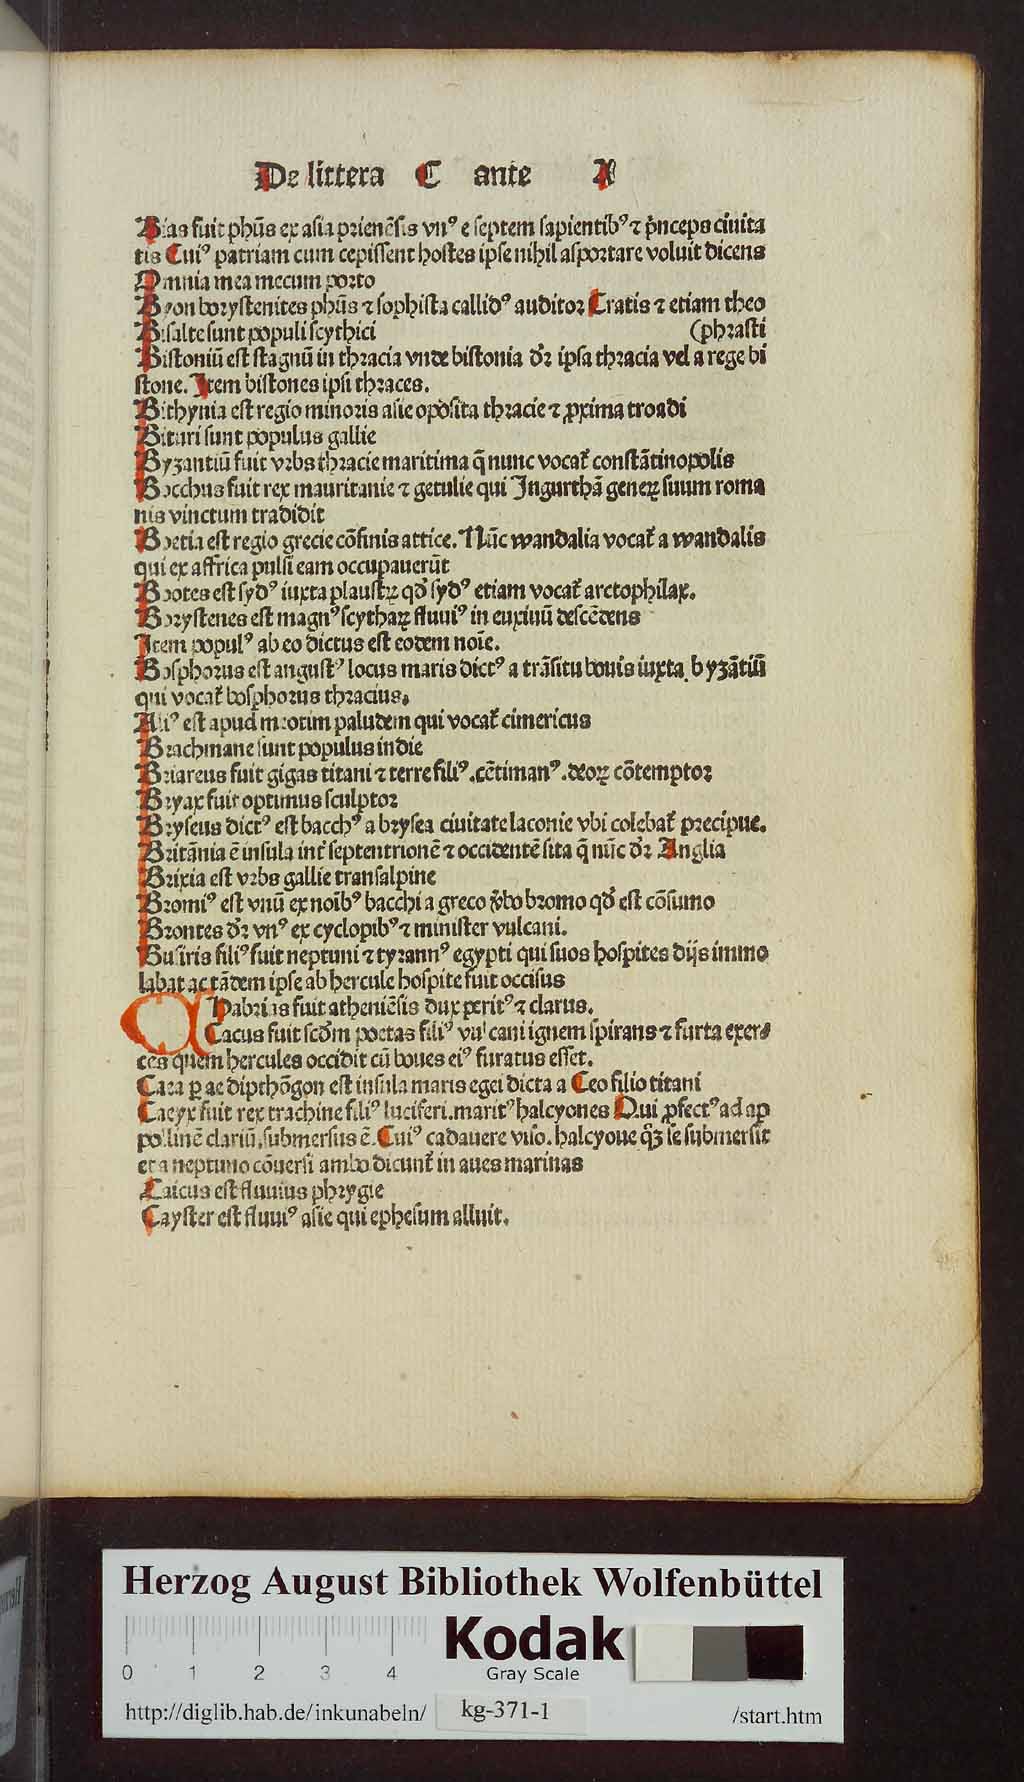 De littera C ante A
Bias fuit phūs ex asia prienēsis vnꝰ e septem sapientibꝰ ⁊ p̄nceps ciuita
tis Cuiꝰ patriam cum cepissent hostes ipse nihil asportare voluit dicens
Omnia mea mecum porto
Byon borystenites phūs ⁊ sophista callidꝰ auditor Cratis ⁊ etiam theo
Bisalte sunt populi scythici (phrasti
Bistoniū est stagnū in thracia vnde bistonia dr̄ ipsa thracia vel a rege bi
stone. Item bistones ipsi thraces.
Bithynia est regio minoris asie oposita thracie ⁊ ꝓxima troadi
Bituri sunt populus gallie
Byzantiū fuit vrbs thracie maritima q̄ nunc vocat̄ constātinopolis
Bocchus fuit rex mauritanie ⁊ getulie qui Jngurthā generꝝ suum roma
nis vinctum tradidit
Boetia est regio grecie cōfinis attice. Nūc wandalia vocat̄ a wandalis
qui ex affrica pulsi eam occupauerūt
Bootes est sydꝰ iuxta plaustrꝝ qd̄ sydꝰ etiam vocat̄ arctophilax.
Borystenes est magnꝰ scytharꝝ fluuiꝰ in euxinū descēdens
Item populꝰ ab eo dictus est eodem noīe.
Bosphorus est angustꝰ locus maris dictꝰ a trāsitu bouis iuxta byzātiū
qui vocat̄ bosphorus thracius.
Aliꝰ est apud meotim paludem qui vocat̄ cimericus
Brachmane sunt populus indie
Briareus fuit gigas titani ⁊ terre filiꝰ .cētimanꝰ. deorꝝ cōtemptor
Bryax fuit optimus sculptor
Bryseus dictꝰ est bacchꝰ a brysea ciuitate laconie vbi colebat̄ precipue.
Britānia ē insula int̄ septentrionē ⁊ occidentē sita q̄ nūc dr̄ Anglia
Brixia est vrbs gallie transalpine
Bromiꝰ est vnū ex noībꝰ bacchi a greco v̄bo bromo qd̄ est cōsumo
Brontes dr̄ vnꝰ ex cyclopibꝰ ⁊ minister vulcani.
Busiris filiꝰ fuit neptuni ⁊ tyrannꝰ egypti qui suos hospites dijs immo
labat ac tādem ipse ab hercule hospite fuit occisus
CHabrias fuit atheniēsis dux peritꝰ ⁊ clarus.
Cacus fuit scd̄m poetas filiꝰ vulcani ignem spirans ⁊ furta exer⸗
ces quem hercules occidit cū boues eiꝰ furatus esset.
Caea ꝑ ae dipthōgon est insula maris egei dicta a Ceo filio titani
Caeyx fuit rex trachine filiꝰ luciferi. maritꝰ halcyones Qui ꝓfectꝰ ad ap
pollinē clariū. submersus ē. Cuiꝰ cadauere viso. halcyone qͦꝫ se submersit
et a neptuno cōuersi ambo dicunt̄ in aues marinas
Caicus est fluuius phrygie
Cayster est fluuiꝰ asie qui ephesum alluit.
Herzog August Bibliothek Wolfenbüttel
Kodak
0 1 2 3 4 Gray Scale
http://diglib.hab.de/inkunabeln/ kg-371-1 /start.htm